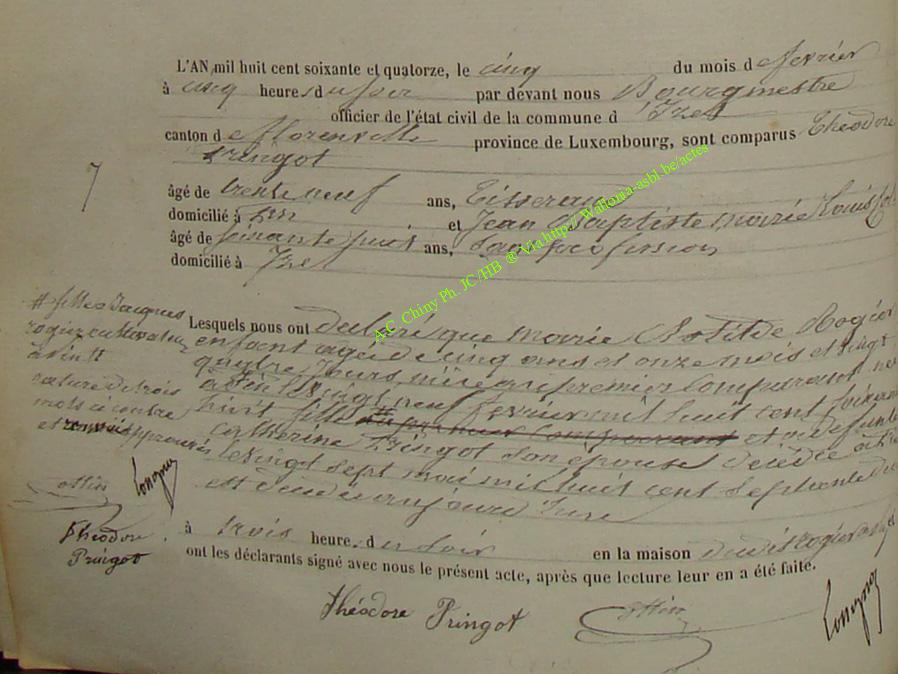 L'AN mil huit cent soixante et quatorze, le cinq du mois de février
à cinq heures du soir par devant nous Bourgmestre
officier de l'état civil de la commune d'Izel
canton de florenville province de Luxembourg, sont comparus Théodore
Pringot
âgé de trente neuf ans, Tisserand
domicilié à Izel et Jean Baptiste Marie Louis
âgé de soixante huit ans, sans profession
domicilié à Izel
Lesquels nous ont déclaré que Marie Clotilde Rogier
enfant agée de cinq ans et onze mois et vingt
quatre jours, nièce au premier comparant, née
à Izel le vingt neuf février mil huit cent soixante
huit fille # du premier comparant et a defunte
catherine Pringot son épouse décédée à Izel
le vingt sept mai mil huit cent septante
est décédée aujourd'hui
à trois heure du soir en la maison dudit Rogier et
ont les déclarants signé avec nous le présent acte, après que lecture leur en a été faite.
Théodore Pringot
7
# fille a Jacques
rogier cultivateur
à Izel
rature de trois
mots ci contre
et renvoi approuvés
Théodore
Pringot
A.C. Chiny Ph. JC/HB ® Via http://Wallonia-asbl.be/actes